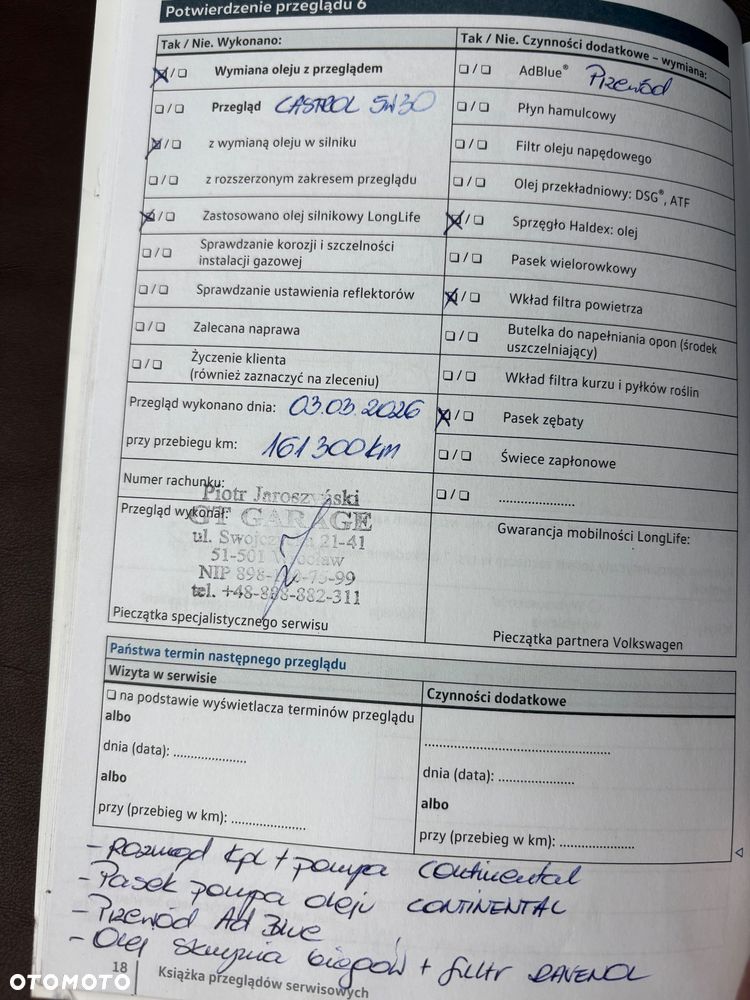 Potwierdzenie przeglądu 6
Tak / Nie. Wykonano:
☒/❏ Wymiana oleju z przeglądem
❏/❏ Przegląd CASTROL 5W30
☒/❏ z wymianą oleju w silniku
❏/❏ z rozszerzonym zakresem przeglądu
☒/❏ Zastosowano olej silnikowy LongLife
❏/❏ Sprawdzanie korozji i szczelności
instalacji gazowej
❏/❏ Sprawdzanie ustawienia reflektorów
❏/❏ Zalecana naprawa
❏/❏ Życzenie klienta
(również zaznaczyć na zleceniu)
Przegląd wykonano dnia: 03.03.2026
przy przebiegu km: 161 300 km
Numer rachunku:
Przegląd wykonał:
Piotr Jaroszyński
GT GARAGE
ul. 21-41
51-501 Wrocław
NIP
tel. +48-888-882-311
Pieczątka specjalistycznego serwisu
Tak / Nie. Czynności dodatkowe – wymiana:
❏/❏ AdBlue® Przewód
❏/❏ Płyn hamulcowy
❏/❏ Filtr oleju napędowego
❏/❏ Olej przekładniowy: DSG®, ATF
☒/❏ Sprzęgło Haldex: olej
❏/❏ Pasek wielorowkowy
☒/❏ Wkład filtra powietrza
❏/❏ Butelka do napełniania opon (środek
uszczelniający)
❏/❏ Wkład filtra kurzu i pyłków roślin
☒/❏ Pasek zębaty
❏/❏ Świece zapłonowe
❏/❏ .....................
Gwarancja mobilności LongLife:
Pieczątka partnera Volkswagen
Państwa termin następnego przeglądu
Wizyta w serwisie
❏ na podstawie wyświetlacza terminów przeglądu
albo
dnia (data): .....................
albo
przy (przebieg w km): .....................
Czynności dodatkowe
.....................................................
dnia (data): .....................
albo
przy (przebieg w km): .....................
- Rozrząd kpl + pompa Continental
- Pasek pompa oleju CONTINENTAL
- Przewód Ad Blue
- Olej skrzynia biegów + filtr RAVENOL
18 Książka przeglądów serwisowych
OTOMOTO